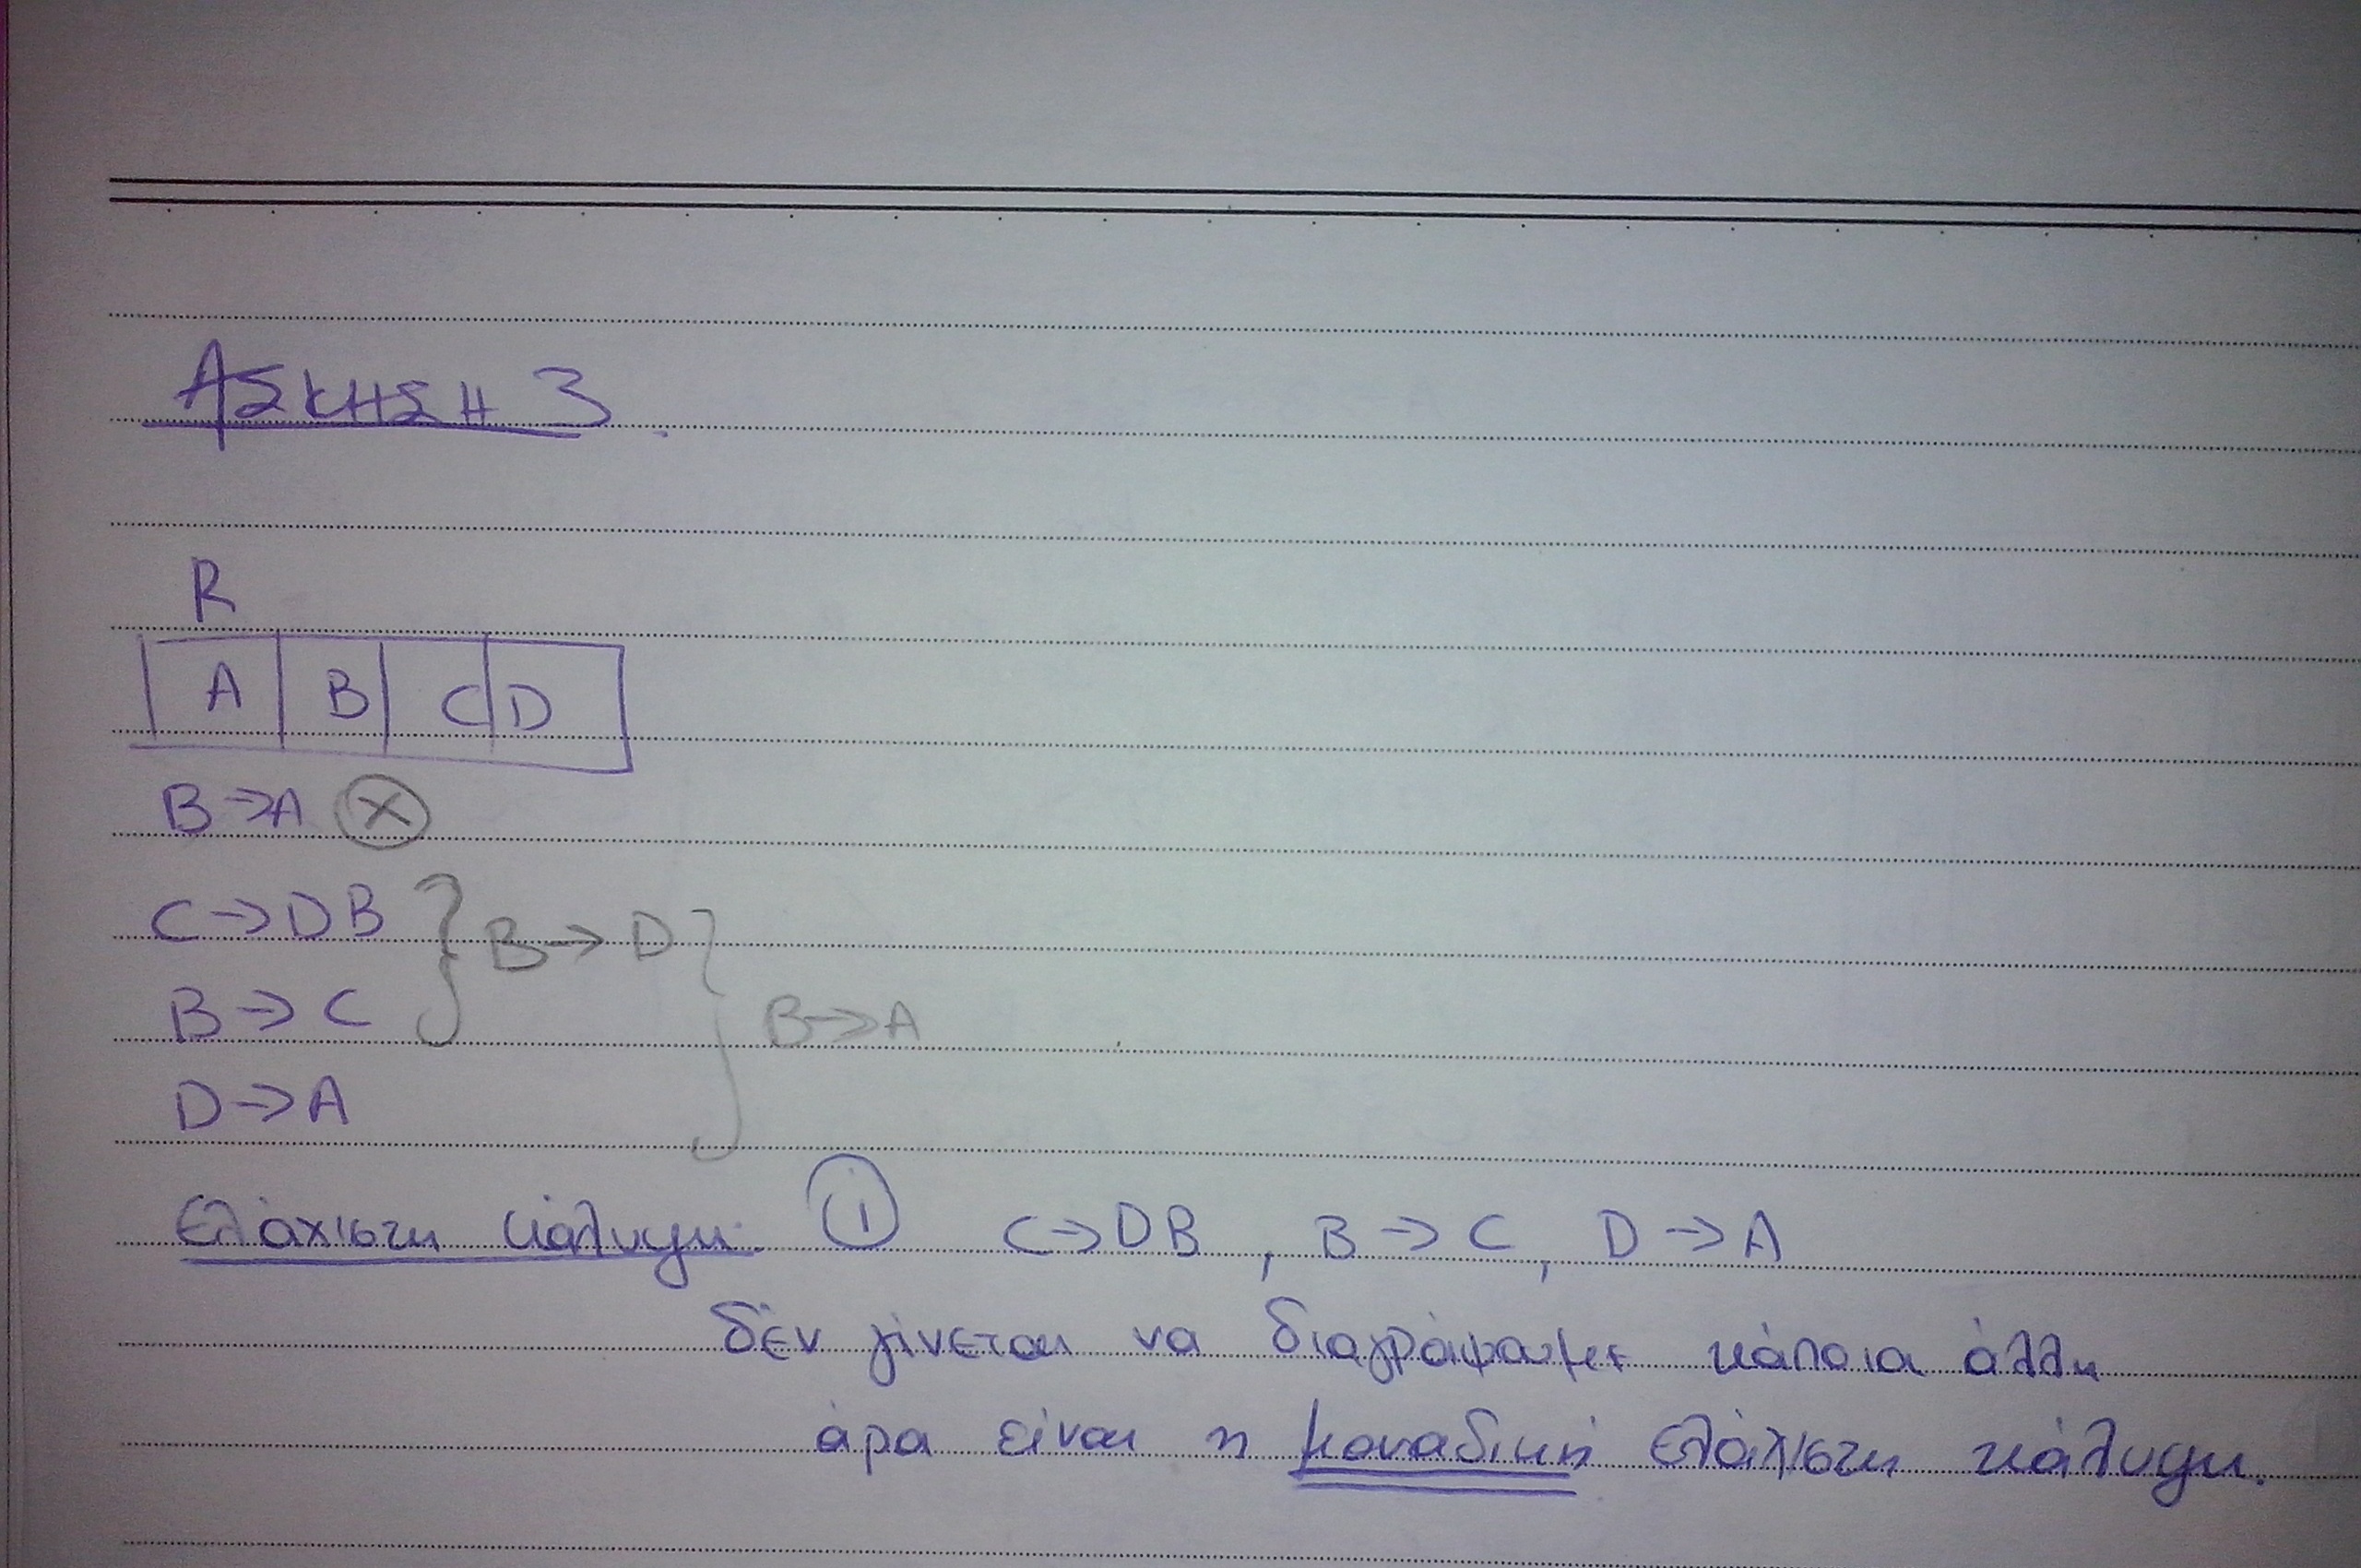 ΑΣΚΗΣΗ 3
R
A B C D
B → A X
C → DB } B → D }
B → C B → A
D → A
Ελάχιστη κάλυψη. 1 C → DB , B → C , D → A
δεν γίνεται να διαγράψουμε κάποια άλλη
άρα είναι η μοναδική ελάχιστη κάλυψη.